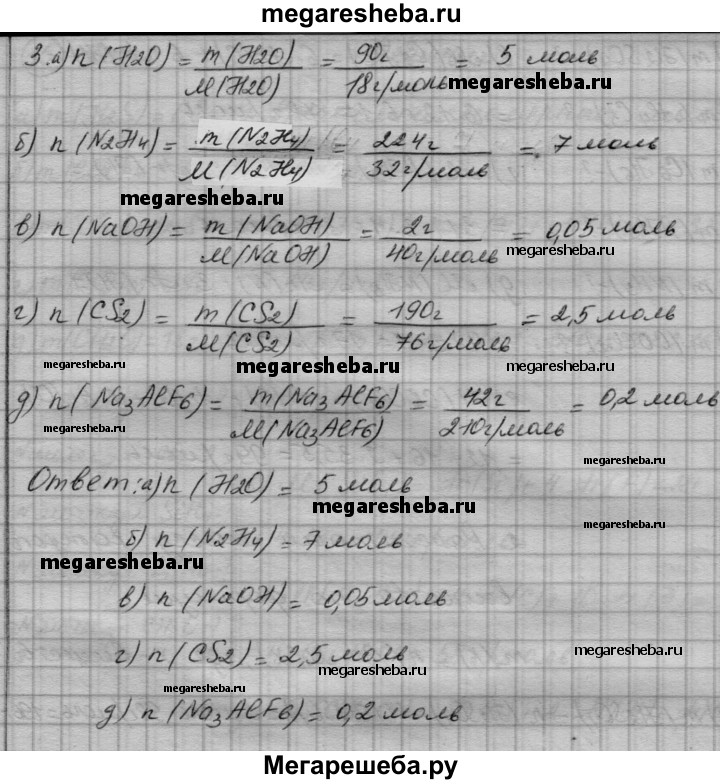 megaresheba.ru
3.а) n (H2O) = m (H2O) / M (H2O) = 90г / 18 г/моль = 5 моль
megaresheba.ru
б) n (N2H4) = m (N2H4) / M (N2H4) = 224г / 32 г/моль = 7 моль
megaresheba.ru
в) n (NaOH) = m (NaOH) / M (NaOH) = 2г / 40 г/моль = 0,05 моль
megaresheba.ru
г) n (CS2) = m (CS2) / M (CS2) = 190г / 76 г/моль = 2,5 моль
megaresheba.ru megaresheba.ru megaresheba.ru
д) n (Na3AlF6) = m (Na3AlF6) / M (Na3AlF6) = 42г / 210 г/моль = 0,2 моль
megaresheba.ru
megaresheba.ru
Ответ: а) n (H2O) = 5 моль
megaresheba.ru
megaresheba.ru
б) n (N2H4) = 7 моль
megaresheba.ru
в) n (NaOH) = 0,05 моль
г) n (CS2) = 2,5 моль
megaresheba.ru megaresheba.ru
megaresheba.ru
д) n (Na3AlF6) = 0,2 моль
Мегарешеба.ру